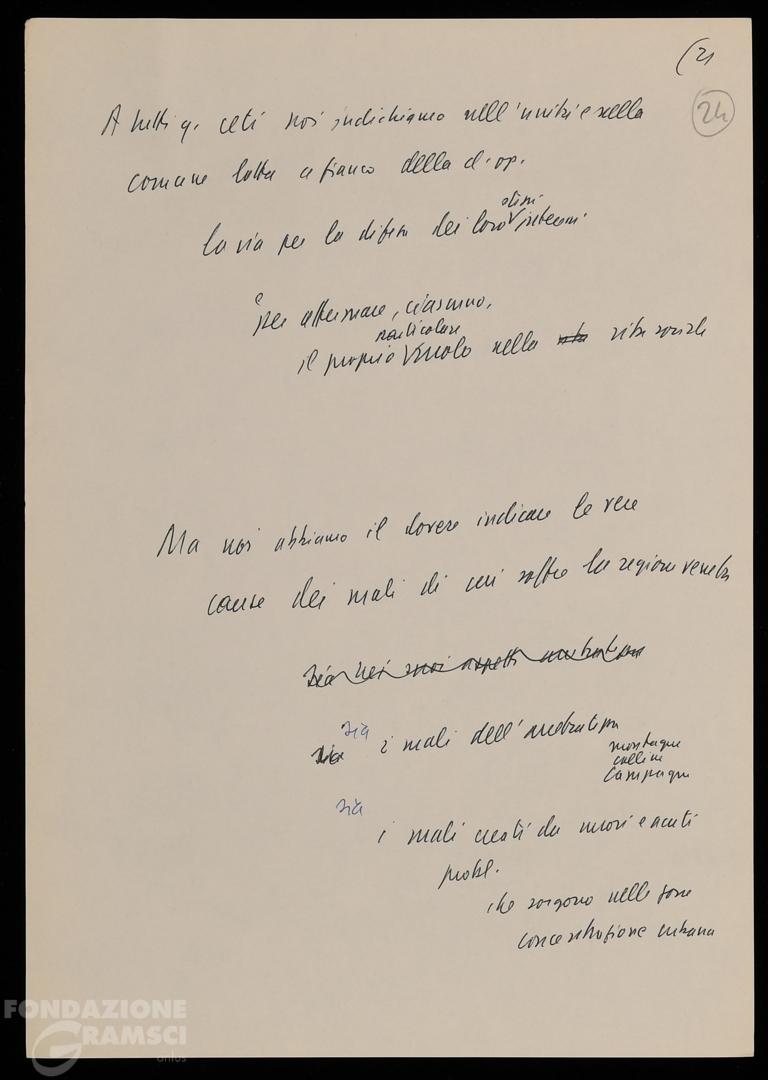 (21
24
A tutti q. ceti noi indichiamo nell'unità e nella
comune lotta a fianco della cl. op.
la via per la difesa dei loro interessi
e
per affermare, ciascuno,
particolare
il proprio ruolo nella vita sociale
Ma noi abbiamo il dovere indicare le vere
cause dei mali di cui soffre la regione veneta
sia nei suoi aspetti
sia i mali dell'arretratezza
montagna
collina
campagna
sia
i mali creati da nuovi e acuti
probl.
che sorgono nelle zone
concentrazione urbana
FONDAZIONE
GRAMSCI
onlus